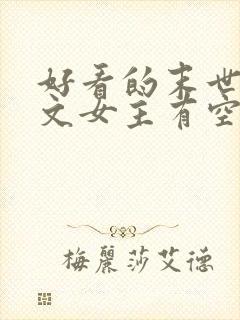 好看的末世
文女主有空
梅麗莎艾德